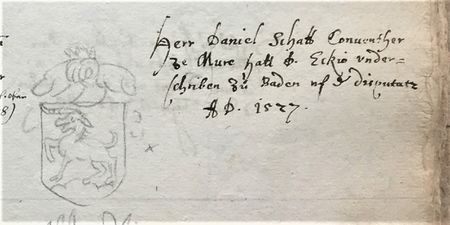 Herr Daniel Schatt Conventher
ze Mure hatt D. Eckio under-
schriben zů Baden uf d disputatz
AD. 1527.
8)